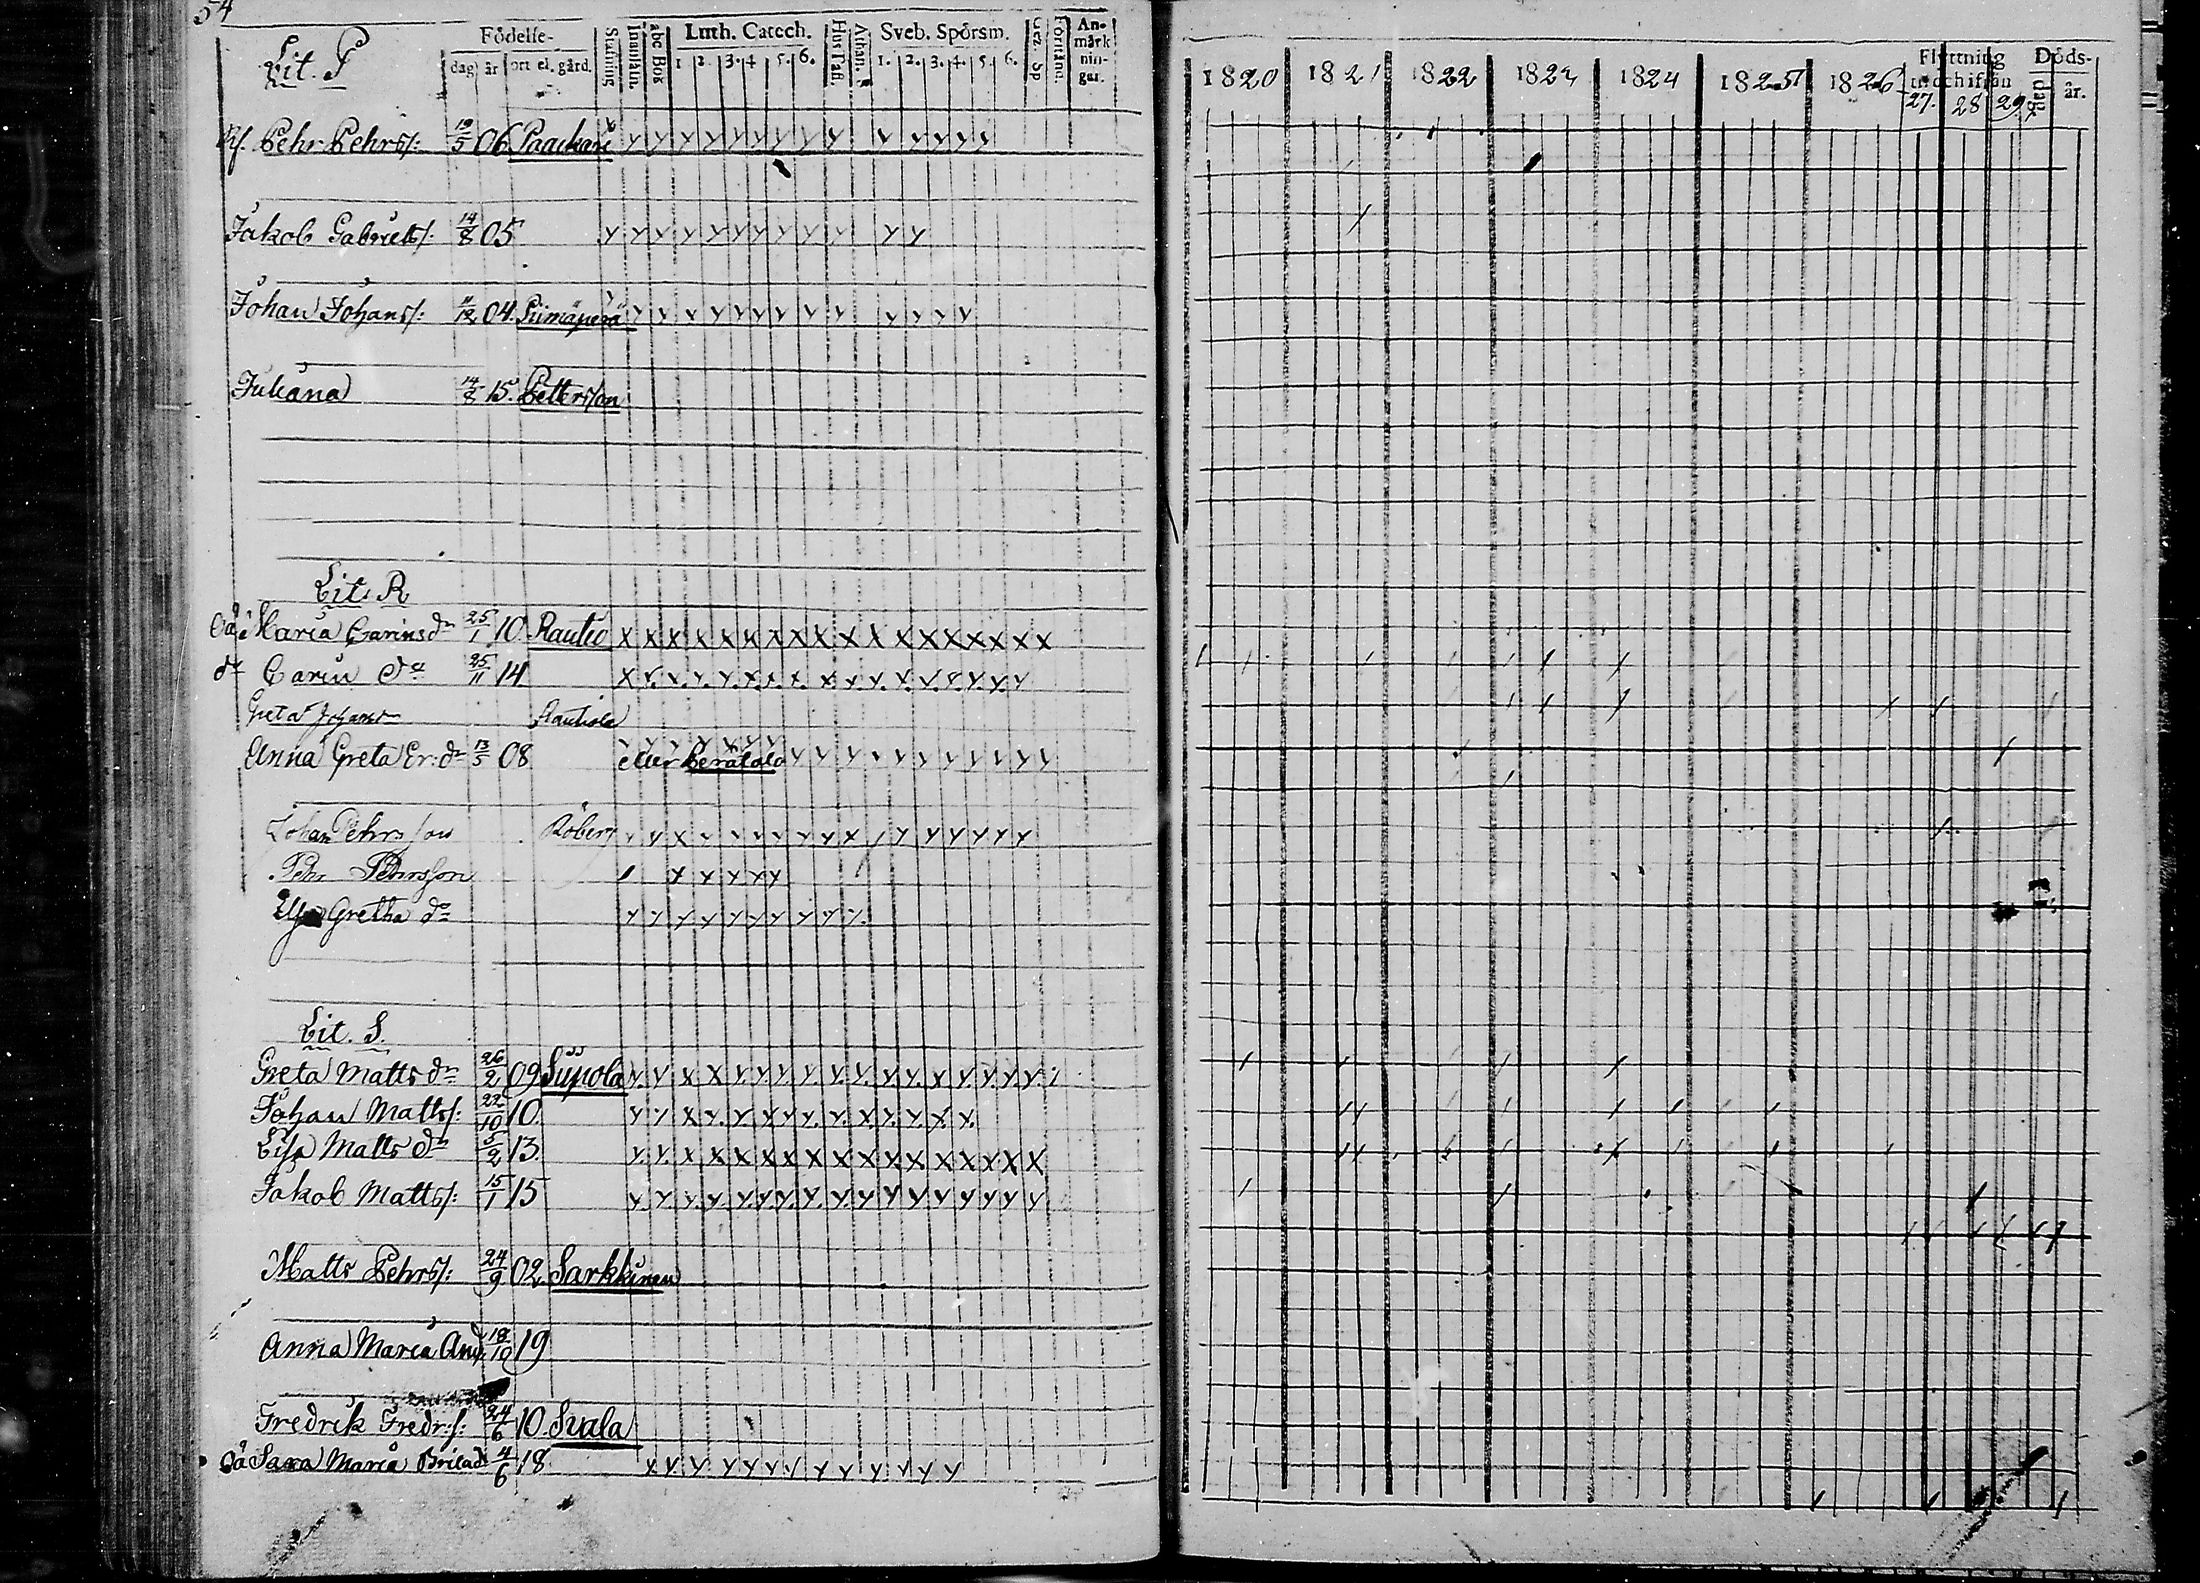 54
Lit. P
Födelse-
dag år ort el. gård.
Stafning
Innanläsn.
abc Bok
Luth. Catech.
1 2. 3. 4 5. 6.
Hus Tafl.
Athan.
Sveb. Spörsm.
1. 2. 3. 4. 5. 6.
Förstånd.
An-
märk
nin-
gar.
Pehr Pehrs/: 19/5 06 Paackari
Jakob Gabriels/: 14/8 05
Johan Johans/: 11/12 04. Piimäperä
Juliana 14/8 15. Petterson
Lit. R
Oä Maria Carinsdr 25/1 10 Rautio
dr Carin do 25/11 14
Greta Johansdr Rautiola
Anna Greta Er:dr 13/5 08 eller Perätalo
Johan Pehrsson Röberg
Pehr Pehrsson
Gretha do
Lit. S.
Greta Mattsdr 26/2 09 Siipola
Johan Matts/: 22/10 10.
Lisa Mattsdr 5/2 13
Jakob Matts/: 15/1 15
Matts Pehrs/: 24/9 02 Sarkkinen
Anna Maria And 18/10 19
Fredrik Fredr:s/: 24/6 10. Suala
Oä Sara Maria Britadr 4/6 18
1820 1821 1822 1823 1824 1825 1826
Flyttning
27. 28 29
Döds-
dag år.